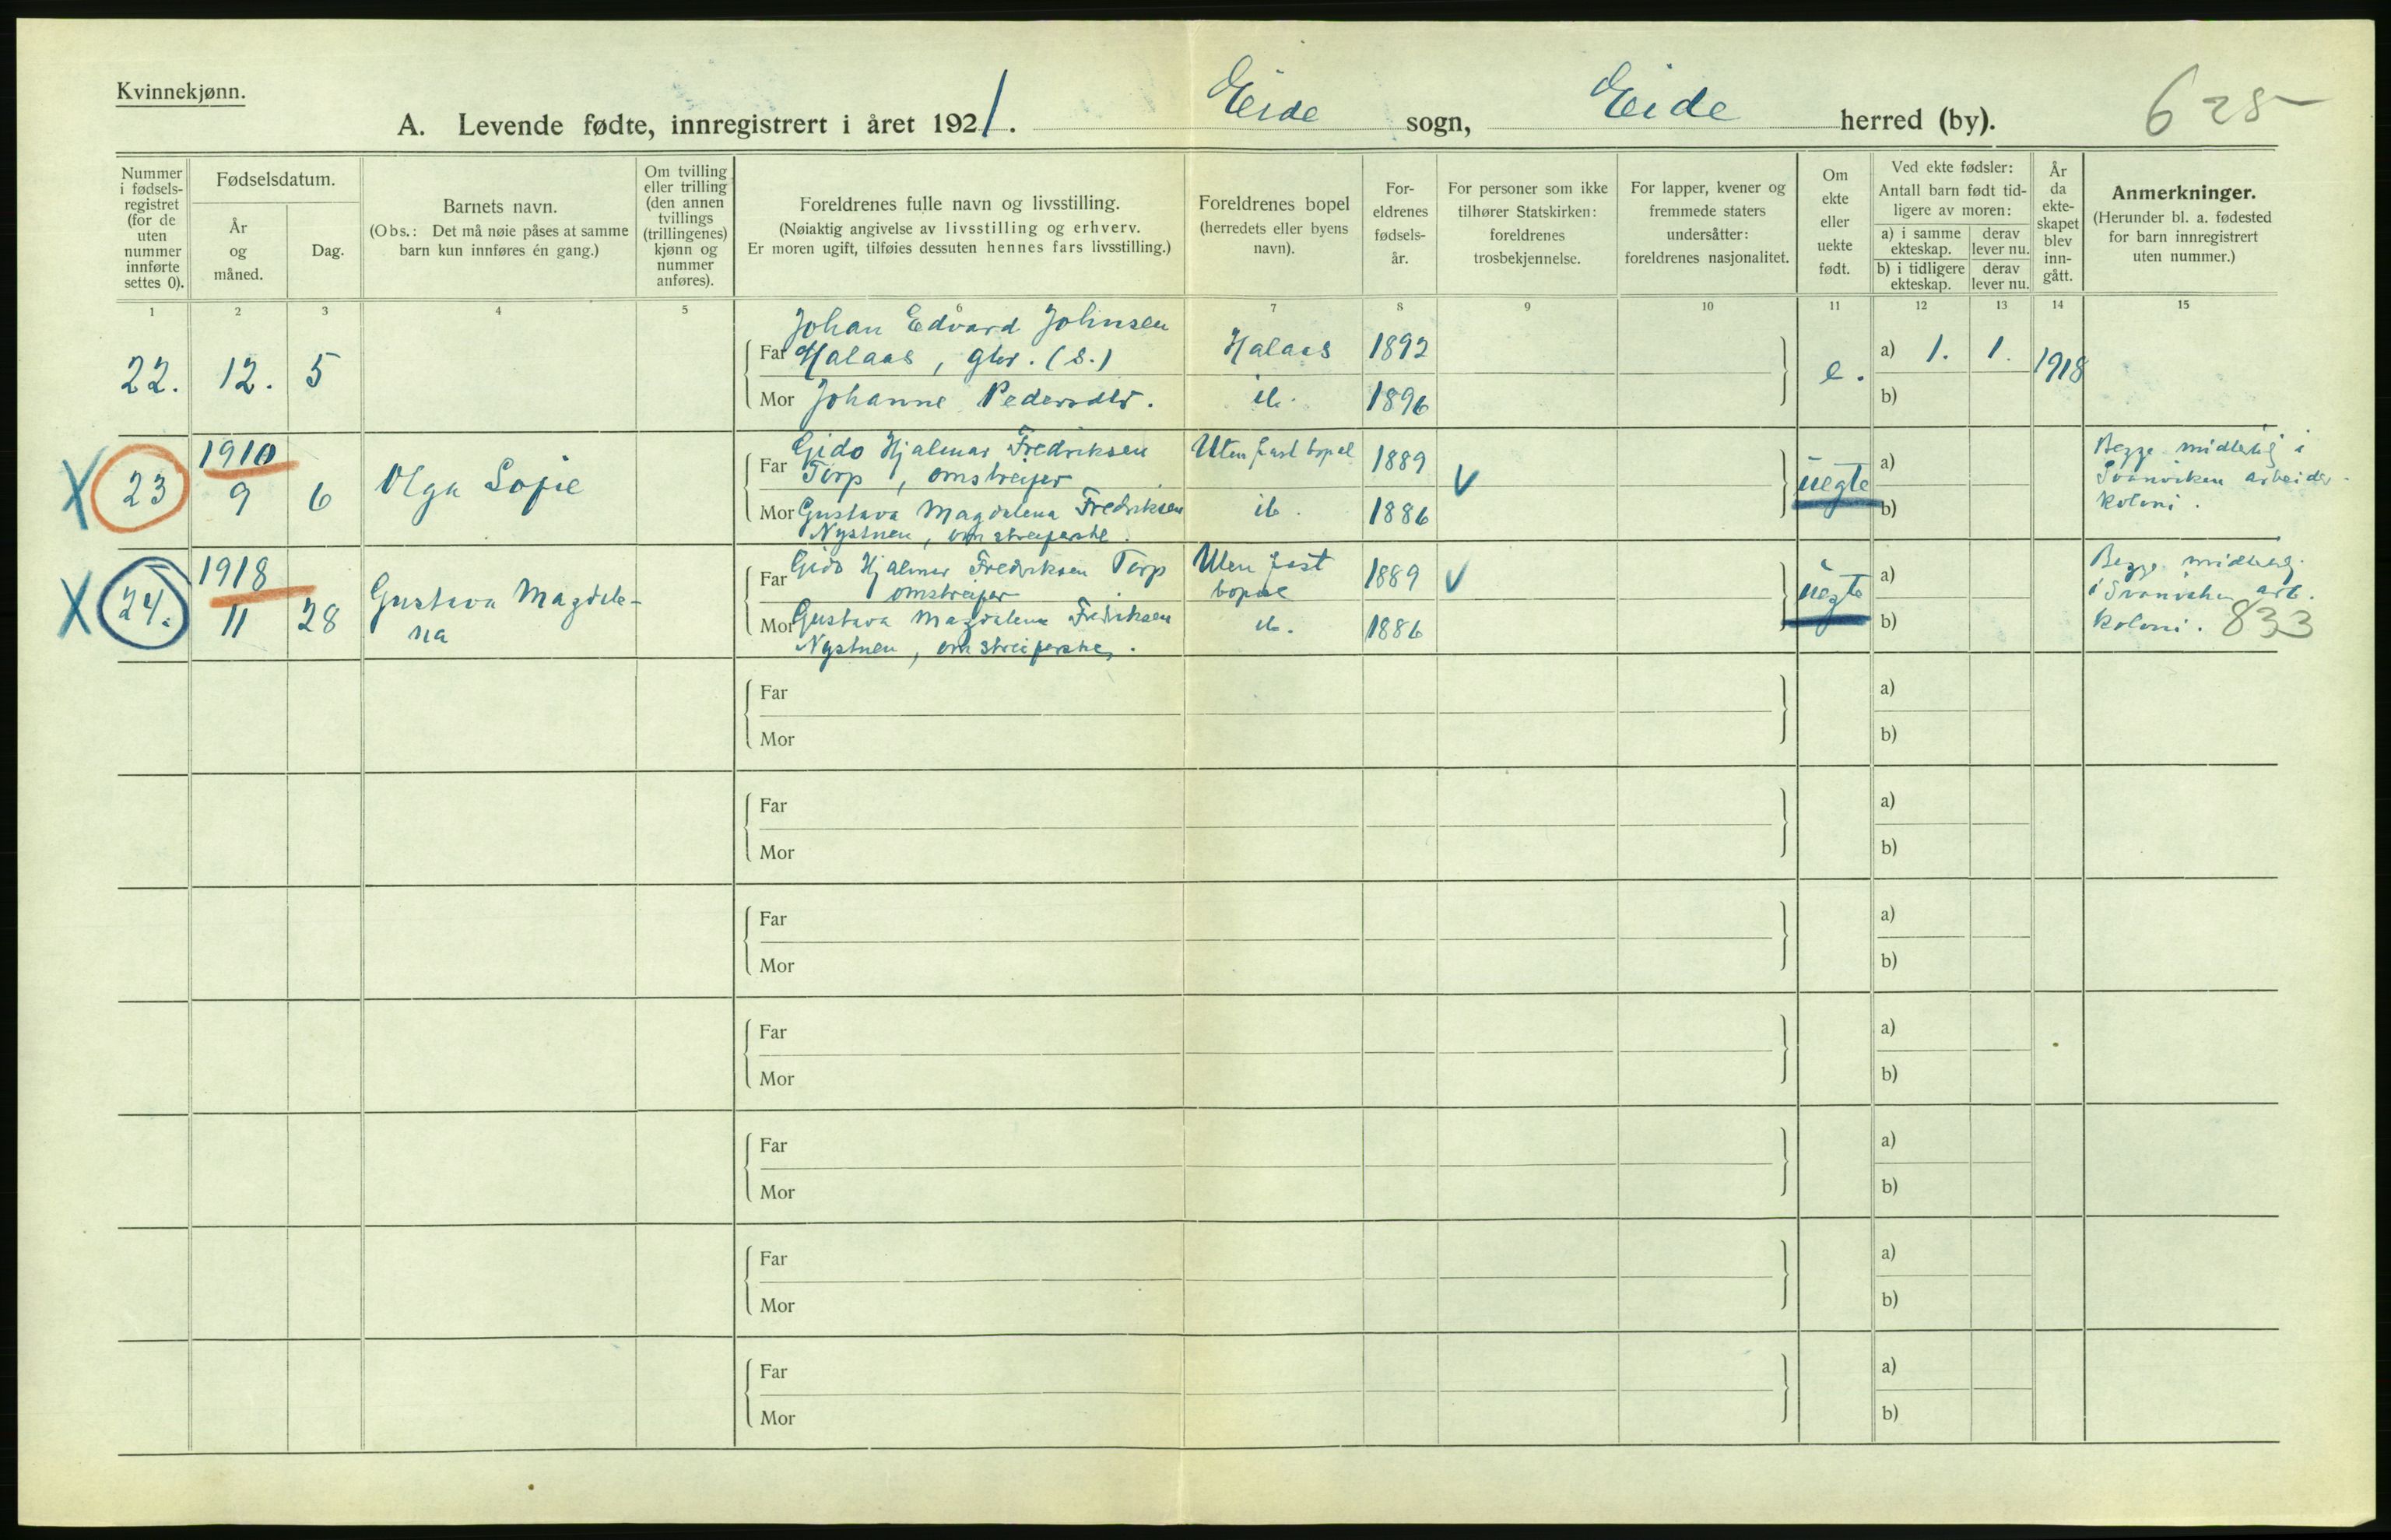 Kvinnekjønn.
A. Levende fødte, innregistrert i året 1921. Eide sogn, Eide herred (by). 625
Nummer i fødsels-registret (for de uten nummer innførte settes 0).
Fødselsdatum.
År og måned.
Dag.
Barnets navn.
(Obs.: Det må nøie påses at samme barn kun innføres én gang.)
Om tvilling eller trilling (den annen tvillings (trillingenes) kjønn og nummer anføres).
Foreldrenes fulle navn og livsstilling.
(Nøiaktig angivelse av livsstilling og erhverv.
Er moren ugift, tilføies dessuten hennes fars livsstilling.)
Foreldrenes bopel
(herredets eller byens navn).
For-eldrenes fødsels-år.
For personer som ikke tilhører Statskirken: foreldrenes trosbekjennelse.
For lapper, kvener og fremmede staters undersåtter: foreldrenes nasjonalitet.
Om ekte eller uekte født.
Ved ekte fødsler:
Antall barn født tid-ligere av moren:
a) i samme ekteskap.
derav lever nu.
b) i tidligere ekteskap.
derav lever nu.
År da ekte-skapet blev inn-gått.
Anmerkninger.
(Herunder bl. a. fødested for barn innregistrert uten nummer.)
1 2 3 4 5 6 7 8 9 10 11 12 13 14 15
22. 12. 5
Johan Edvard Johnsen
Far Halaas, gbr. (S.) Halaas 1892
Mor Johanne Pedersdtr. ib. 1896
e. a) 1. 1. 1918
b)
X 23 1910
9 6 Olga Sofie
Gido Hjalmar Fredriksen
Far Torp, omstreifer Uten fast bopel 1889 V
Mor Gustava Magdalena Fredriksen ib. 1886
Nystuen, omstreiferske.
uegte a)
b)
Begge midlertidig i
Svanviken arbeider-
koloni.
X 24. 1918
11 28 Gustava Magdale-
na
Far Gido Hjalmar Fredriksen Torp Uten fast 1889 V
omstreifer bopæl
Mor Gustava Magdalena Fredriksen ib. 1886
Nystuen, omstreiferske.
uegte a)
b)
Begge midlertidig.
i Svanviken arb.
koloni. 833
Far a)
Mor b)
Far a)
Mor b)
Far a)
Mor b)
Far a)
Mor b)
Far a)
Mor b)
Far a)
Mor b)
Far a)
Mor b)